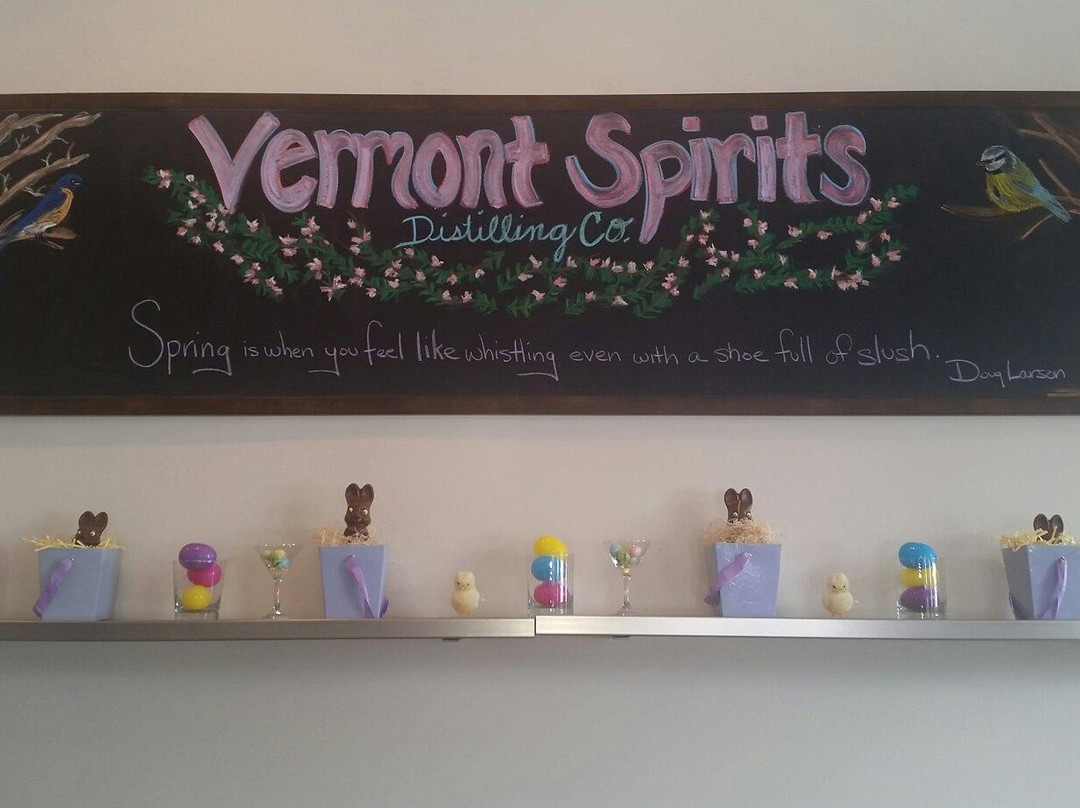 Vermont Spirits
Distilling Co.
Spring is when you feel like whistling even with a shoe full of slush.
Doug Larson